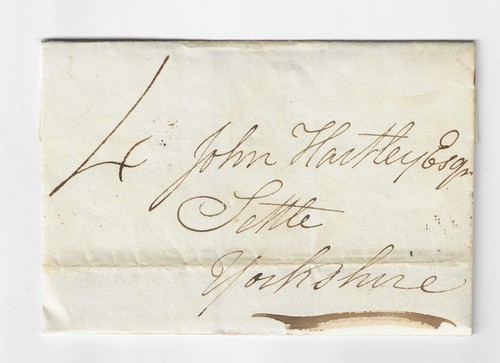 4
John Hartley Esqr
Settle
Yorkshire